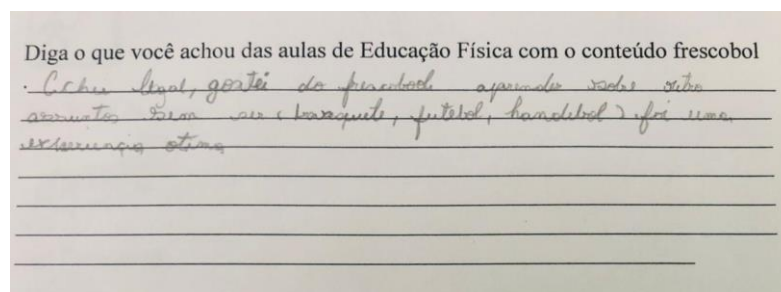 Diga o que você achou das aulas de Educação Física com o conteúdo frescobol
. Achei legal, gostei do frescobol aprender sobre outro
assuntos sem ser (basquete, futebol, handebol) foi uma
experiencia otima